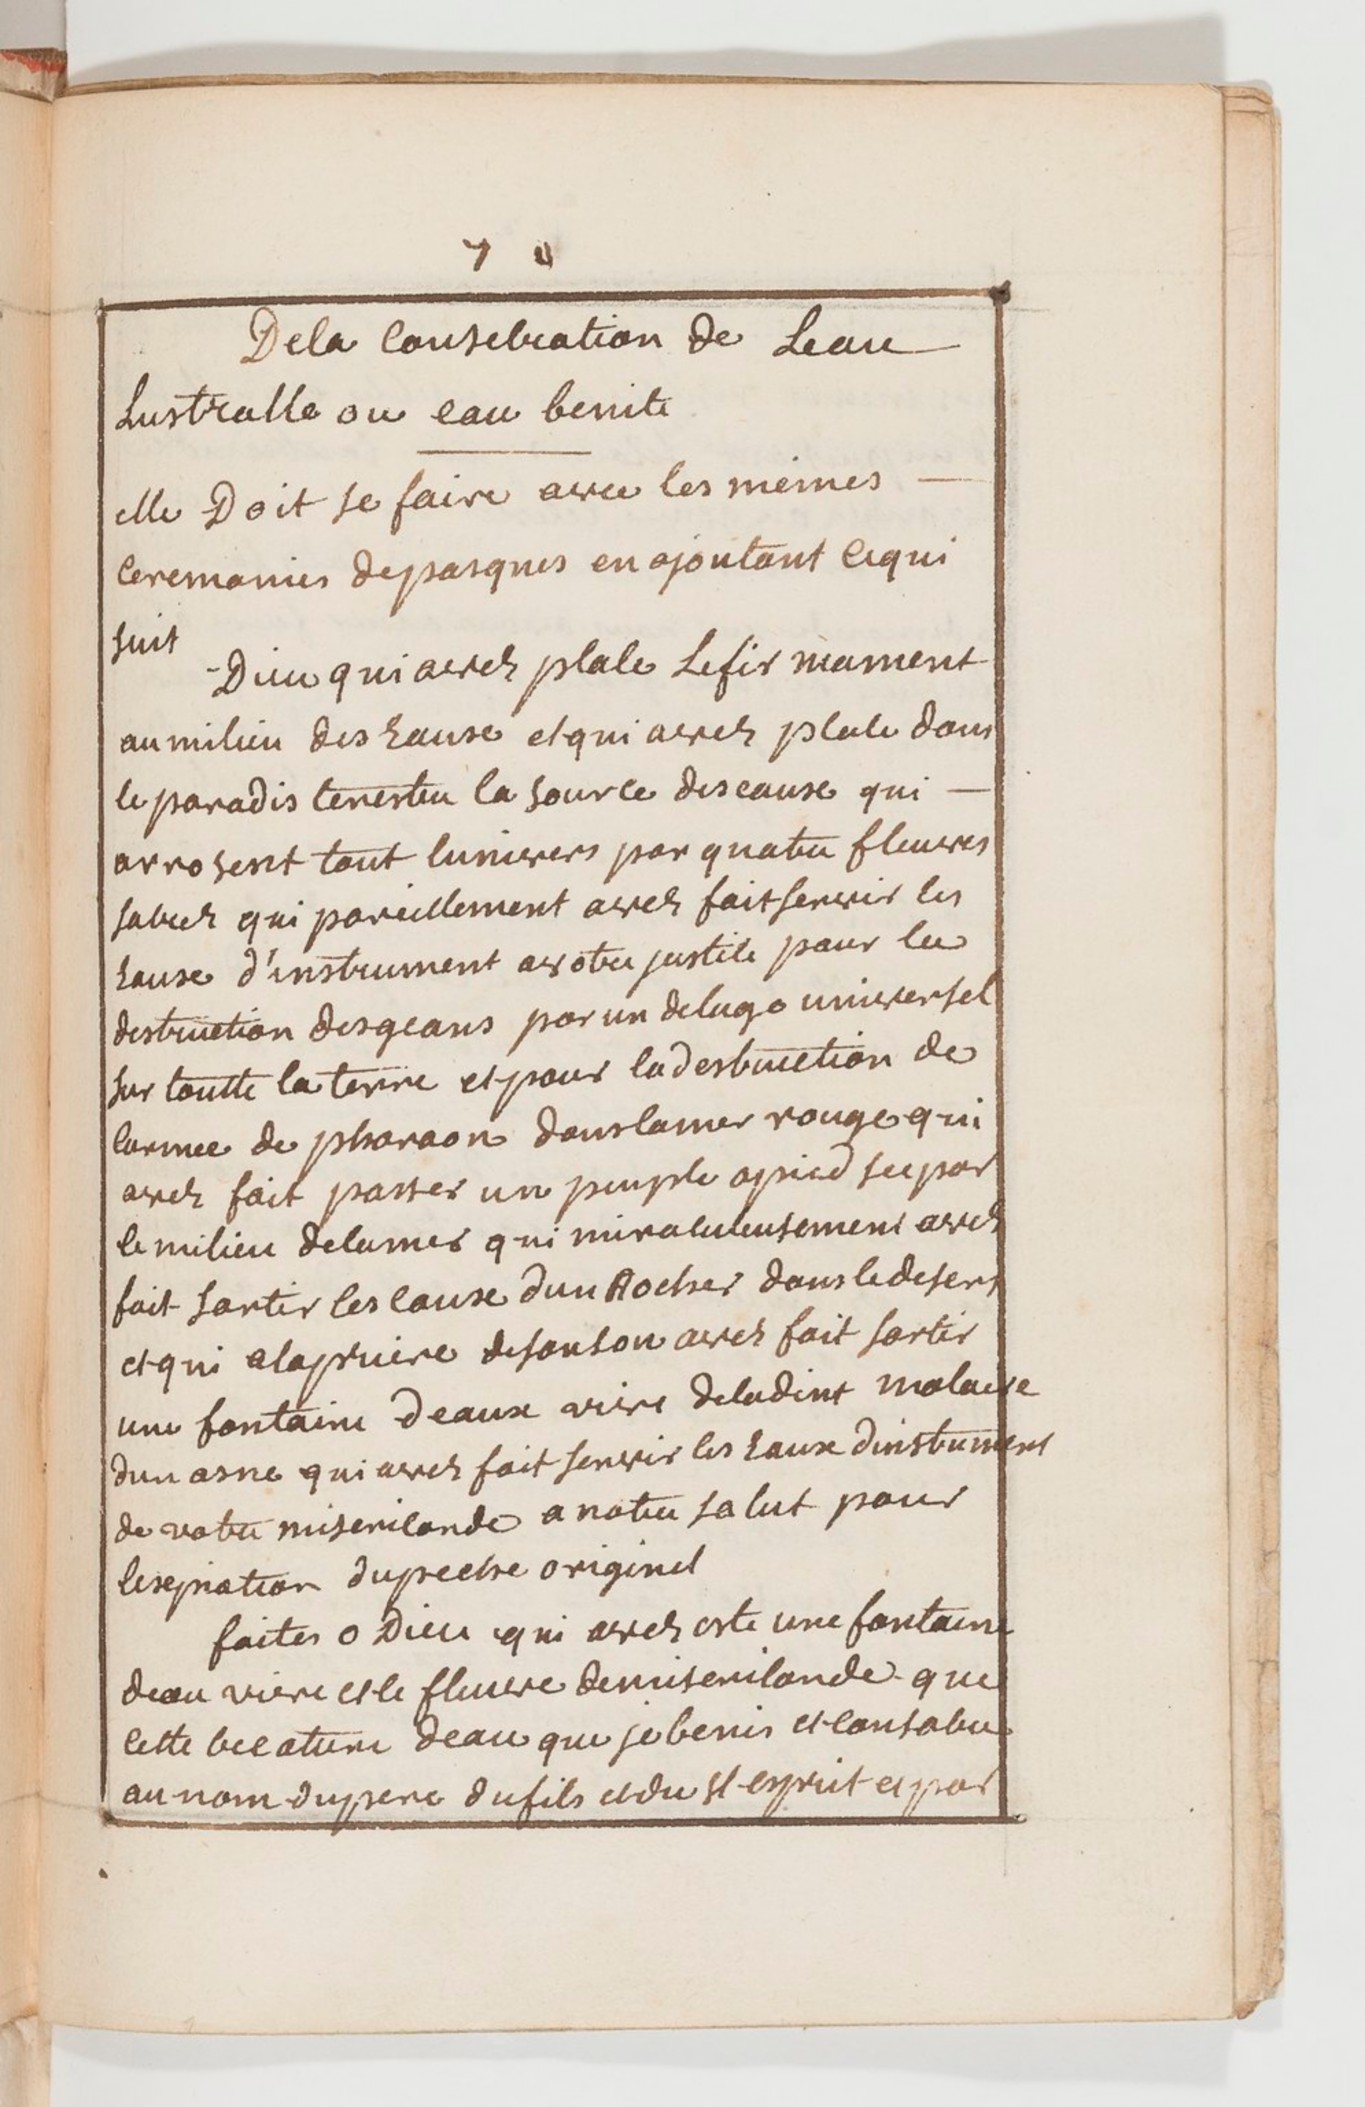 7
De la Consecration de Leau
Lustralle ou eau benite
elle Doit se faire avec les mêmes
Ceremonies de pasques en ajoutant ce qui
suit
Dieu qui avez place Le fir mament
au milieu des Eause et qui avez place dans
le paradis terestre la source des eause qui
arrosent tout lunivers par quatre fleuves
sacrez qui pareillement avez fait servir les
Eause d'instrument a votre justice pour la
destruction des geans par un deluge universel
sur toutte la terre et pour la destruction de
larmee de pharaon dans la mer rouge qui
avez fait passer un peuple a pied sec par
le milieu de la mer qui miraculeusement avez
fait sortir les Eause dun Rocher dans le desert
et qui a la priere de sanson avez fait sortir
une fontaine deaux vive de la dent malaire
dun asne qui avez fait servir les Eaux dinstrument
de votre misericorde a notre salut pour
lexpiation du peche originel
faites o Dieu qui avez este une fontaine
deau vive et le fleuve de misericorde que
cette creature deau que je benis et consacre
au nom du pere du fils et du st esprit et par